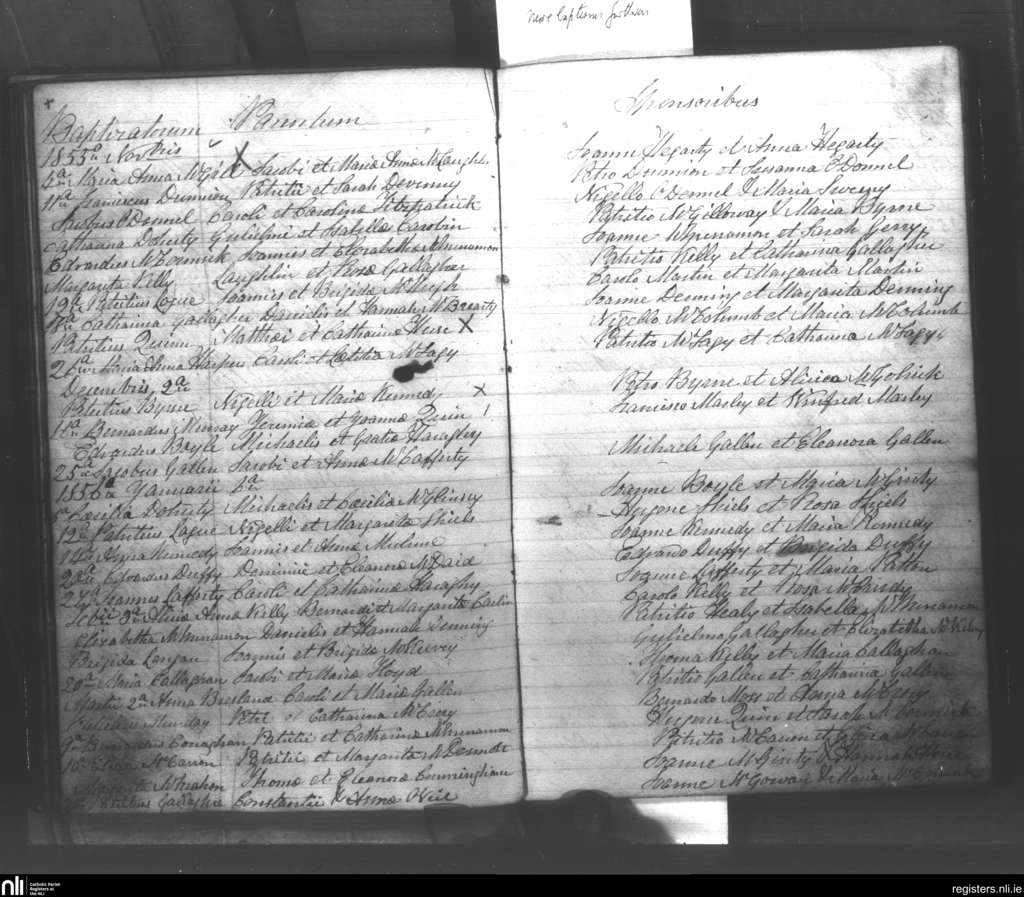 Baptizatorum Parentum
1855 a Novbris
4a Maria Anna McGill X Jacobi et Mariæ Annæ McLaughlin
11a Franciscus Dunnion Patritii et Sarah Devenny
Jacobus O'Donnel Caroli et Carolinæ Fitzpatrick
Catharina Doherty Gulielmi et Isabellæ Carobin
Edvardus McCormick Joannis et Elizabethæ McMenamon
Margarita Kelly Laughlin et Rosæ Gallagher
19a Patritius Logue Joannis et Brigidæ McHugh
18a Catharina Gallagher Danielis et Hannah McBrearty
Patritius Quinn Matthæi et Catharinæ X
26a Maria Anna Harper Caroli et Lætitiæ McLagy
Decembris 2a
Patritius Byrne Nigelli et Mariæ Kennedy X
18a Bernardus Murray Jeremiæ et Joannæ Quin
Edvardus Boyle Michaelis et Gratiæ Haraghy
25a Jacobus Gallen Jacobi et Annæ McCafferty
1856a Januarii 4a
Cæcilia Doherty Michaelis et Cæciliæ McGlinsey
13a Patritius Logue Nigelli et Margarita Shiels
14a Anna Kennedy Joannis et Annæ
20a Edvardus Duffy Dominici et Eleanoræ McDaid
27a Joannes Lafferty Caroli et Catharinæ Haraghy
Febii 3a Alicia Anna Kelly Bernardi et Margarita Carlin
Elizabetha McMenamon Danielis et Hannah Denning
Brigida Lanyan Joannis et Brigidæ McKievey
20a Maria Callaghan Jacobi et Mariæ Floyd
Martii 2a Anna Bresland Caroli et Mariæ Gallen
Sheriday Petri et Catharina McCrory
9a Bernardus Conaghan Patritii et Catharinæ McMenamon
16a Eliza McCarron Patritii et Margarita McDermott
Margarita McMahon Thomæ et Eleanoræ Cunningham
Patritius Gallagher Constantii & Annæ O'Neil
Sponsoribus
Joanne Hegarty et Anna Hegarty
Petro Dunnion et Susanna O'Donnel
Nigello O'Donnel & Maria Sweeny
Patritio McGilloway & Maria Byrne
Joanne McMenamon et Sarah Gerry
Patritio Kelly et Catharina Gallagher
Carolo Martin et Margarita Martin
Joanne Denning et Margarita Denning
Nigello McColumb et Maria McColumb
Patritio McLagy et Catharina McLagy
Petro Byrne et Alicia McGolrick
Francisco Masley et Winifred Masley
Michaele Gallen et Eleanora Gallen
Joanne Boyle et Maria McGinty
Eugene Shiels et Rosa Shiels
Joanne Kennedy et Maria Kennedy
Edvardo Duffy et Brigida Duffy
Joanne Lafferty et Maria Patton
Carolo Kelly et Rosa
Patritio Healy et Isabella McMenamon
Gulielmo Gallagher et Elizabetha
Thoma Kelly et Maria Callaghan
Patritio Gallen et Catharina Gallen
Bernardo Moss et Anna McCrory
Eugene Quin et Sarah McCormick
Patritio McCarron et McCarron
Joanne McGinty & Hannah
Joanne McGowan & Maria McCormick
nli
Catholic Parish
Registers at
the NLI
registers.nli.ie